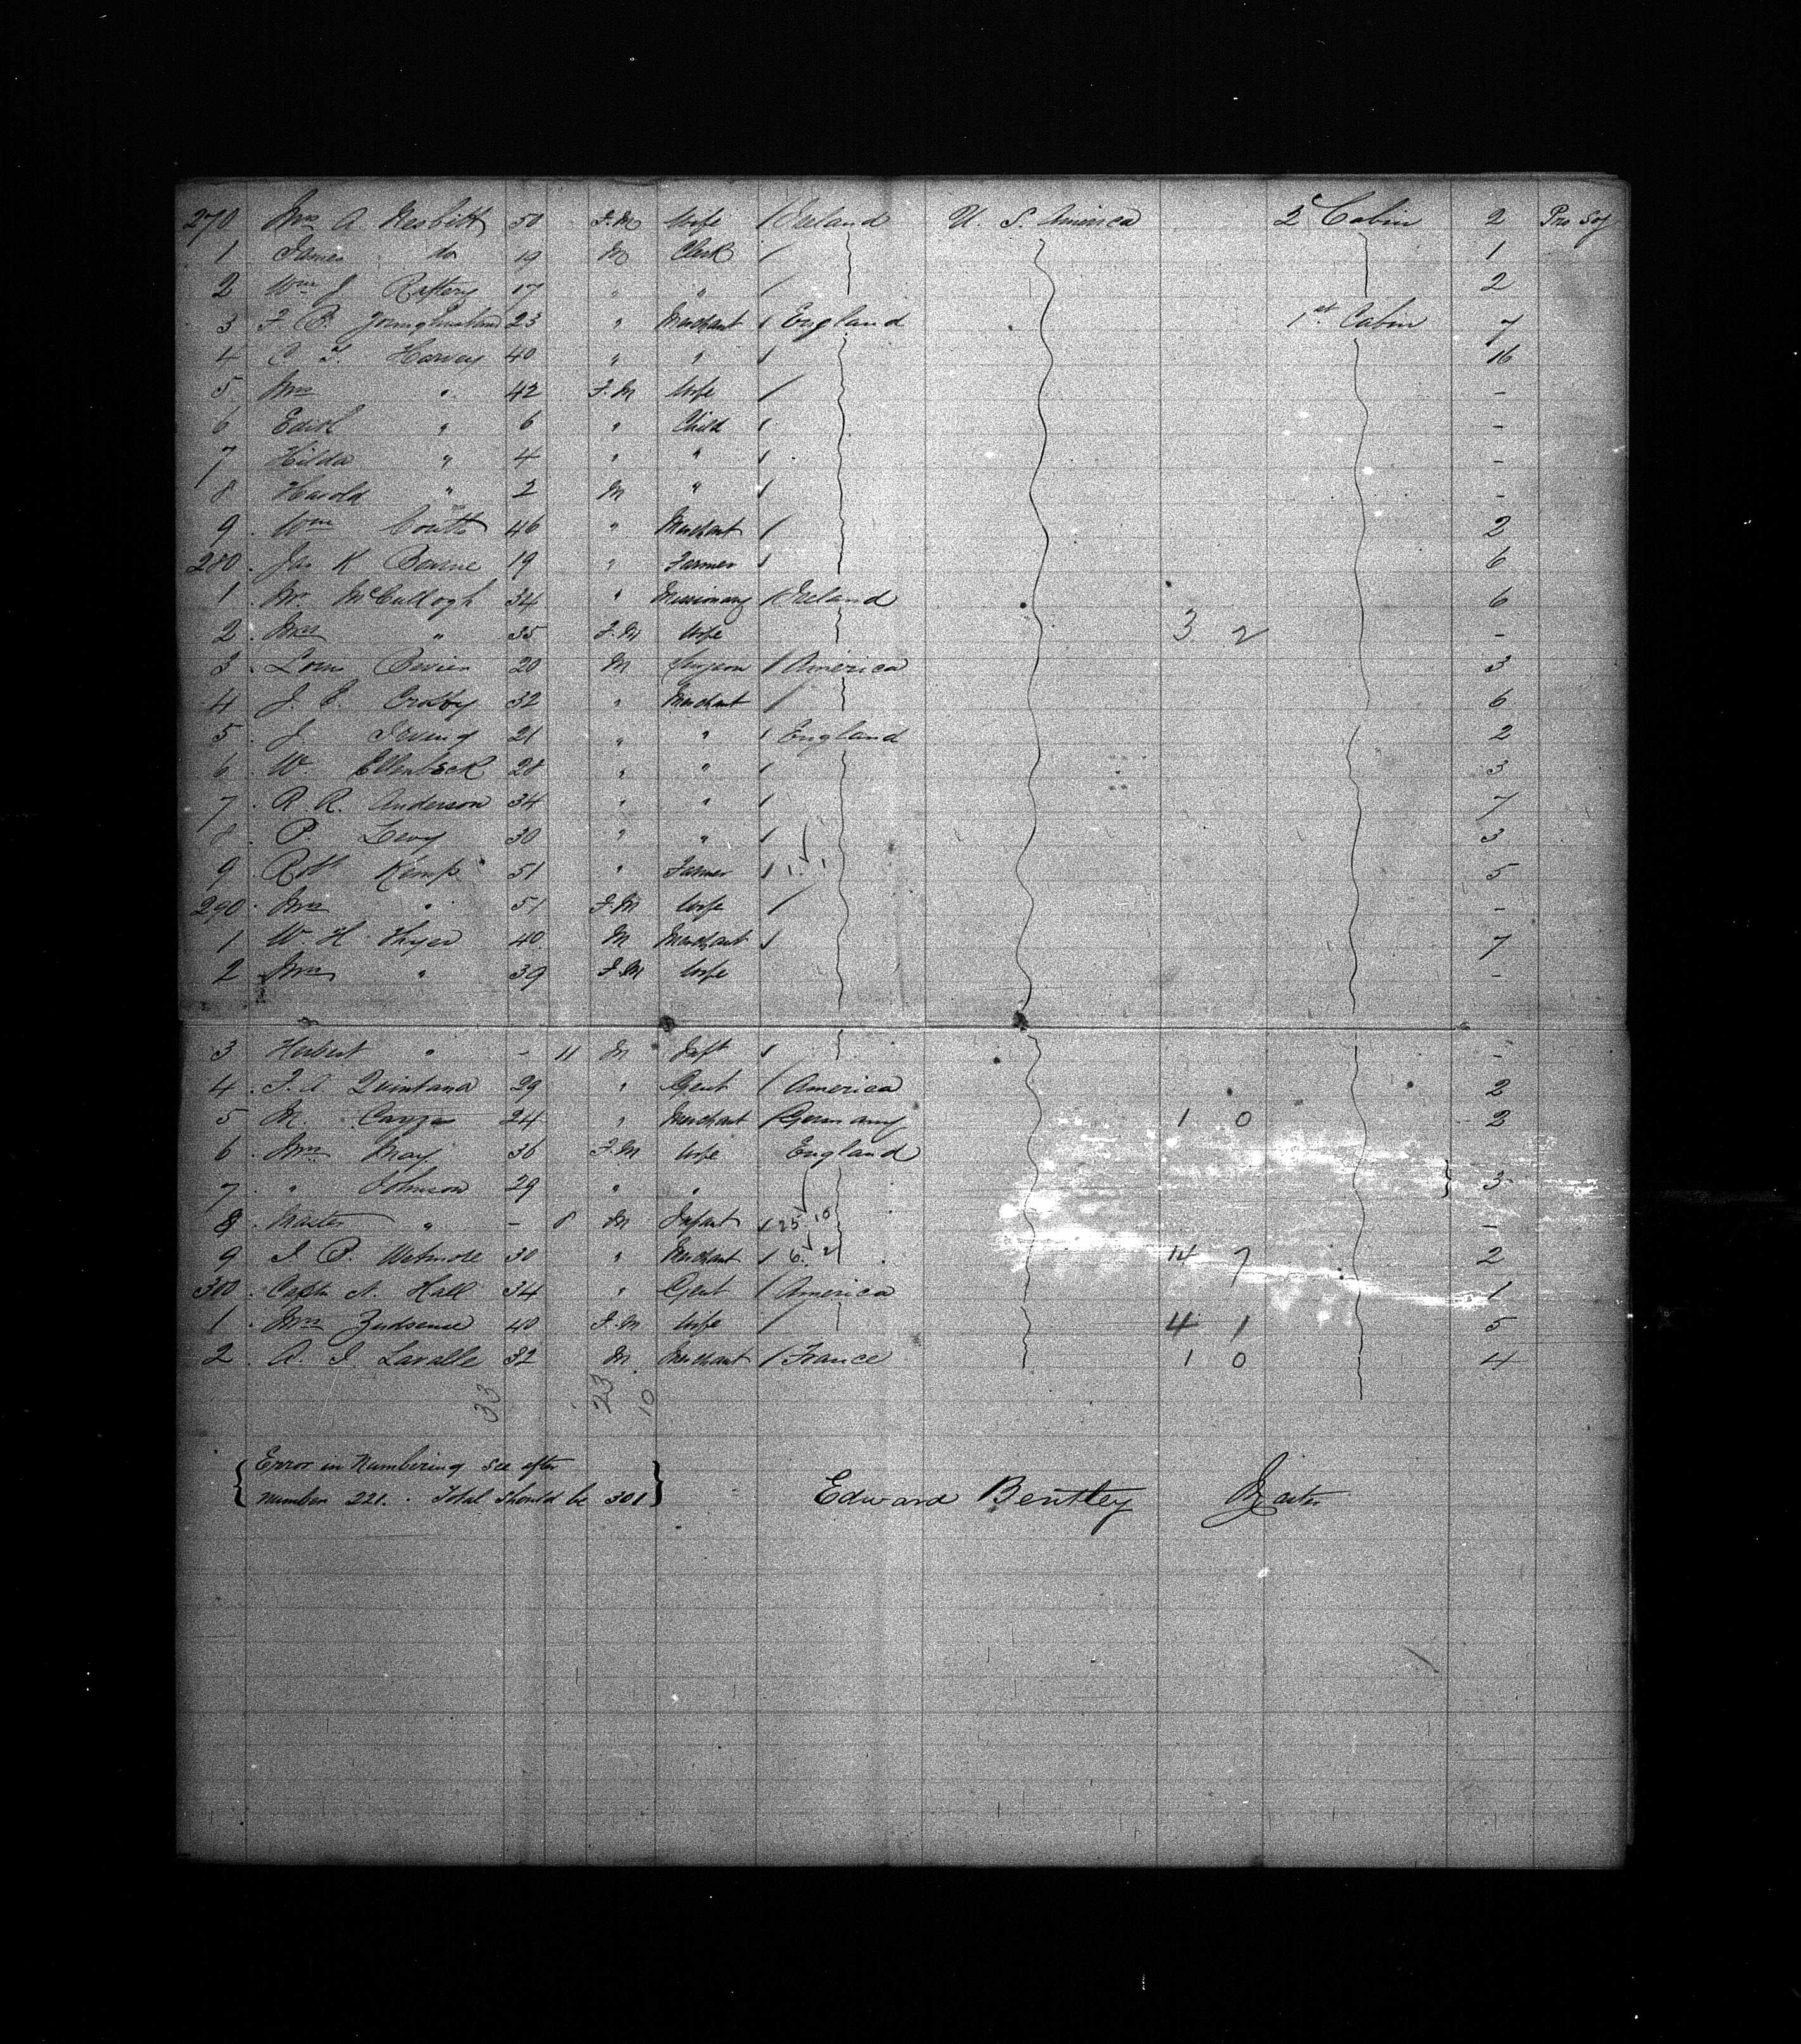 270 Mrs A. Nesbitt 50 F.M Wife / Ireland U. S. America 2 Cabin 2 Pro Soj
1 James do 19 M Clerk / 1
2 Wm J Raftery 17 " " / 2
3 F. B. Younghusband 23 " Merchant / England 1st Cabin 7
4 C. F. Harvey 40 " " / 16
5 Mrs " 42 F.M Wife / -
6 Edith " 6 " Child / -
7 Hilda " 4 " " / -
8 Harold " 2 M " / -
9 Wm Coutts 46 " Merchant / 2
280 Jas K Bourne 19 " Farmer / 6
1 Mr McCullogh 34 " Missionary / Ireland 6
2 Mrs " 35 F.M Wife 3 2 -
3 Louis 20 M Surgeon / America 3
4 J. E. Crosby 32 " Merchant / 6
5 J Irving 21 " " / England 2
6 W. Ellenbeck 28 " " / 3
7 R. R. Anderson 34 " " / 7
8 P. Levy 30 " " / 3
9 Robt Kemp 51 " Farmer / 1 1 5
290 Mrs " 51 F.M Wife / -
1 W H Thyer 40 M Merchant / 7
2 Mrs " 39 F.M Wife -
3 Herbert " - 11 M Inft / -
4 T. A Quintana 29 " Gent / America 2
5 M 24 " Merchant / Germany 1 0 2
6 Mrs May 36 F.M Wife England
7 " Johnson 29 " " } 3
8 Master " - 8 M Infant / 25 10 -
9 J. P. Wetmore 30 " Merchant / 6 2 14 7 2
300 Captn N. Hall 34 " Gent / America 1
1 Mrs 40 F.M Wife / 4 1 5
2 A. J. Lavalle 32 M Merchant / France 1 0 4
33 23 10
{ Error in Numbering see after
number 221. Total should be 301 }
Edward Bentley Master